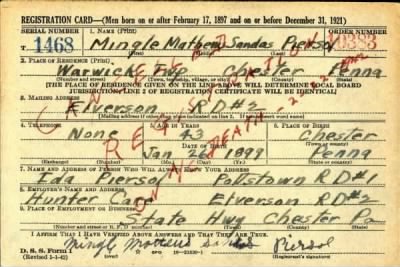 REGISTRATION CARD—(Men born on or after February 17, 1897 and on or before December 31, 1921)
SERIAL NUMBER 1. NAME (Print) ORDER NUMBER
T 1468 Mingle Mathew Sandas Piersol 10383
2. PLACE OF RESIDENCE (Print)
Warwick Twp Chester Penna
(Town, township, village, or city) (County) (State)
[THE PLACE OF RESIDENCE GIVEN ON THE LINE ABOVE WILL DETERMINE LOCAL BOARD
JURISDICTION; LINE 2 OF REGISTRATION CERTIFICATE WILL BE IDENTICAL]
3. MAILING ADDRESS
Elverson RD#2
[Mailing address if other than place indicated on line 2. If same insert word same]
4. TELEPHONE 5. AGE IN YEARS 6. PLACE OF BIRTH
None 43 Chester
DATE OF BIRTH (Town or county)
Jan 26 1899 Penna
(Exchange) (Number) (Mo.) (Day) (Yr.) (State or country)
7. NAME AND ADDRESS OF PERSON WHO WILL ALWAYS KNOW YOUR ADDRESS
Eda Piersol Pottstown RD#1
8. EMPLOYER'S NAME AND ADDRESS
Hunter Care Elverson RD#2
9. PLACE OF EMPLOYMENT OR BUSINESS
State Hwy Chester Pa
I AFFIRM THAT I HAVE VERIFIED ABOVE ANSWERS AND THAT THEY ARE TRUE.
D. S. S. Form 1
Piersol
CANCELLED
REGISTRATION
DEATH